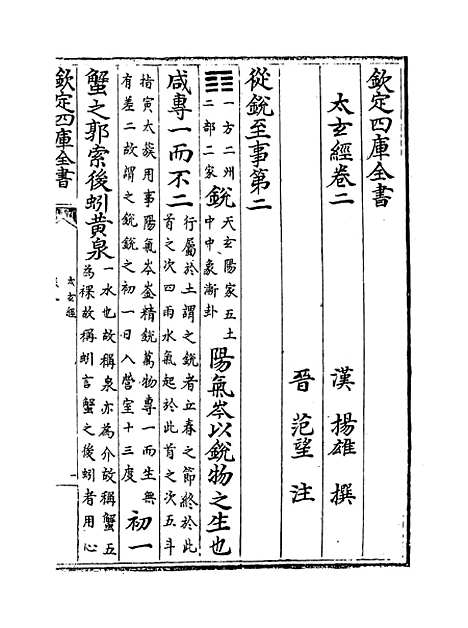 欽定四庫全書
太玄經卷二
漢 揚雄 撰
晉 范望 注
從銳至事第二
一方二州
二部二家
銳
天玄陽家五土
中中象漸卦
陽氣岑以銳物之生也
咸專一而不二
行屬於土謂之銳者立春之節終於此
首之次四雨水氣起於此首之次五斗
指寅太蔟用事陽氣岑崟精銳萬物專一而生無
有差二故謂之銳銳之初一日入營室十三度
初一
蟹之郭索後蚓黄泉
一水也故稱泉亦為介故稱蟹五
為裸故稱蚓言蟹之後蚓者用心
欽定四庫全書
太玄經
一